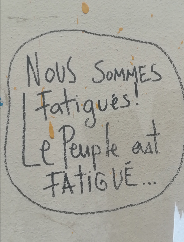 NOUS SOMMES
Fatigués!
Le Peuple est
FATIGUÉ...